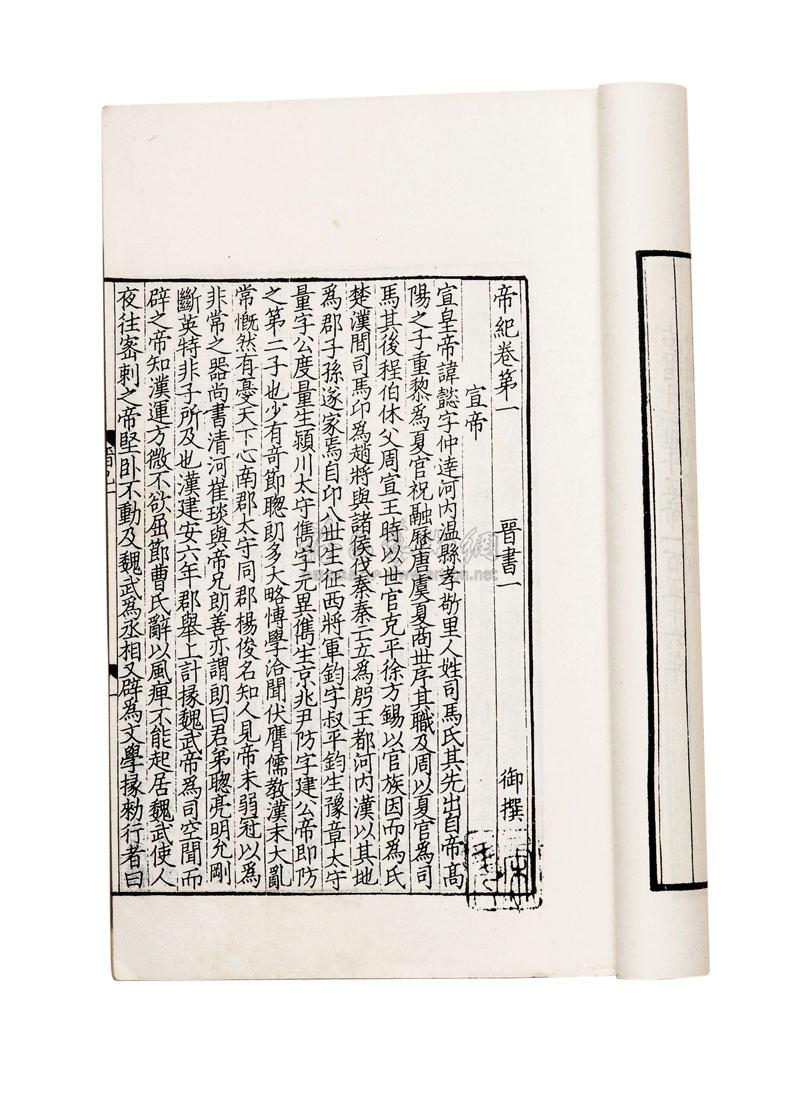 帝紀卷第一 晉書一 御撰
宣帝
宣皇帝諱懿字仲達河内温縣孝敬里人姓司馬氏其先出自帝髙
陽之子重黎爲夏官祝融歷唐虞夏商世序其職及周以夏官爲司
馬其後程伯休父周宣王時以世官克平徐方錫以官族因而爲氏
楚漢間司馬卬爲趙將與諸侯伐秦秦亡立爲殷王都河内漢以其地
爲郡子孫遂家焉自卬八世生征西將軍鈞字叔平鈞生豫章太守
量字公度量生潁川太守儁字元異儁生京兆尹防字建公帝即防
之第二子也少有竒節聦朗多大略博學洽聞伏膺儒教漢末大亂
常慨然有憂天下心南郡太守同郡楊俊名知人見帝未弱冠以爲
非常之器尚書清河崔琰與帝兄朗善亦謂朗曰君弟聦亮明允剛
斷英特非子所及也漢建安六年郡舉上計掾魏武帝爲司空聞而
辟之帝知漢運方微不欲屈節曹氏辭以風痺不能起居魏武使人
夜往宻刺之帝堅卧不動及魏武爲丞相又辟爲文學掾勑行者曰